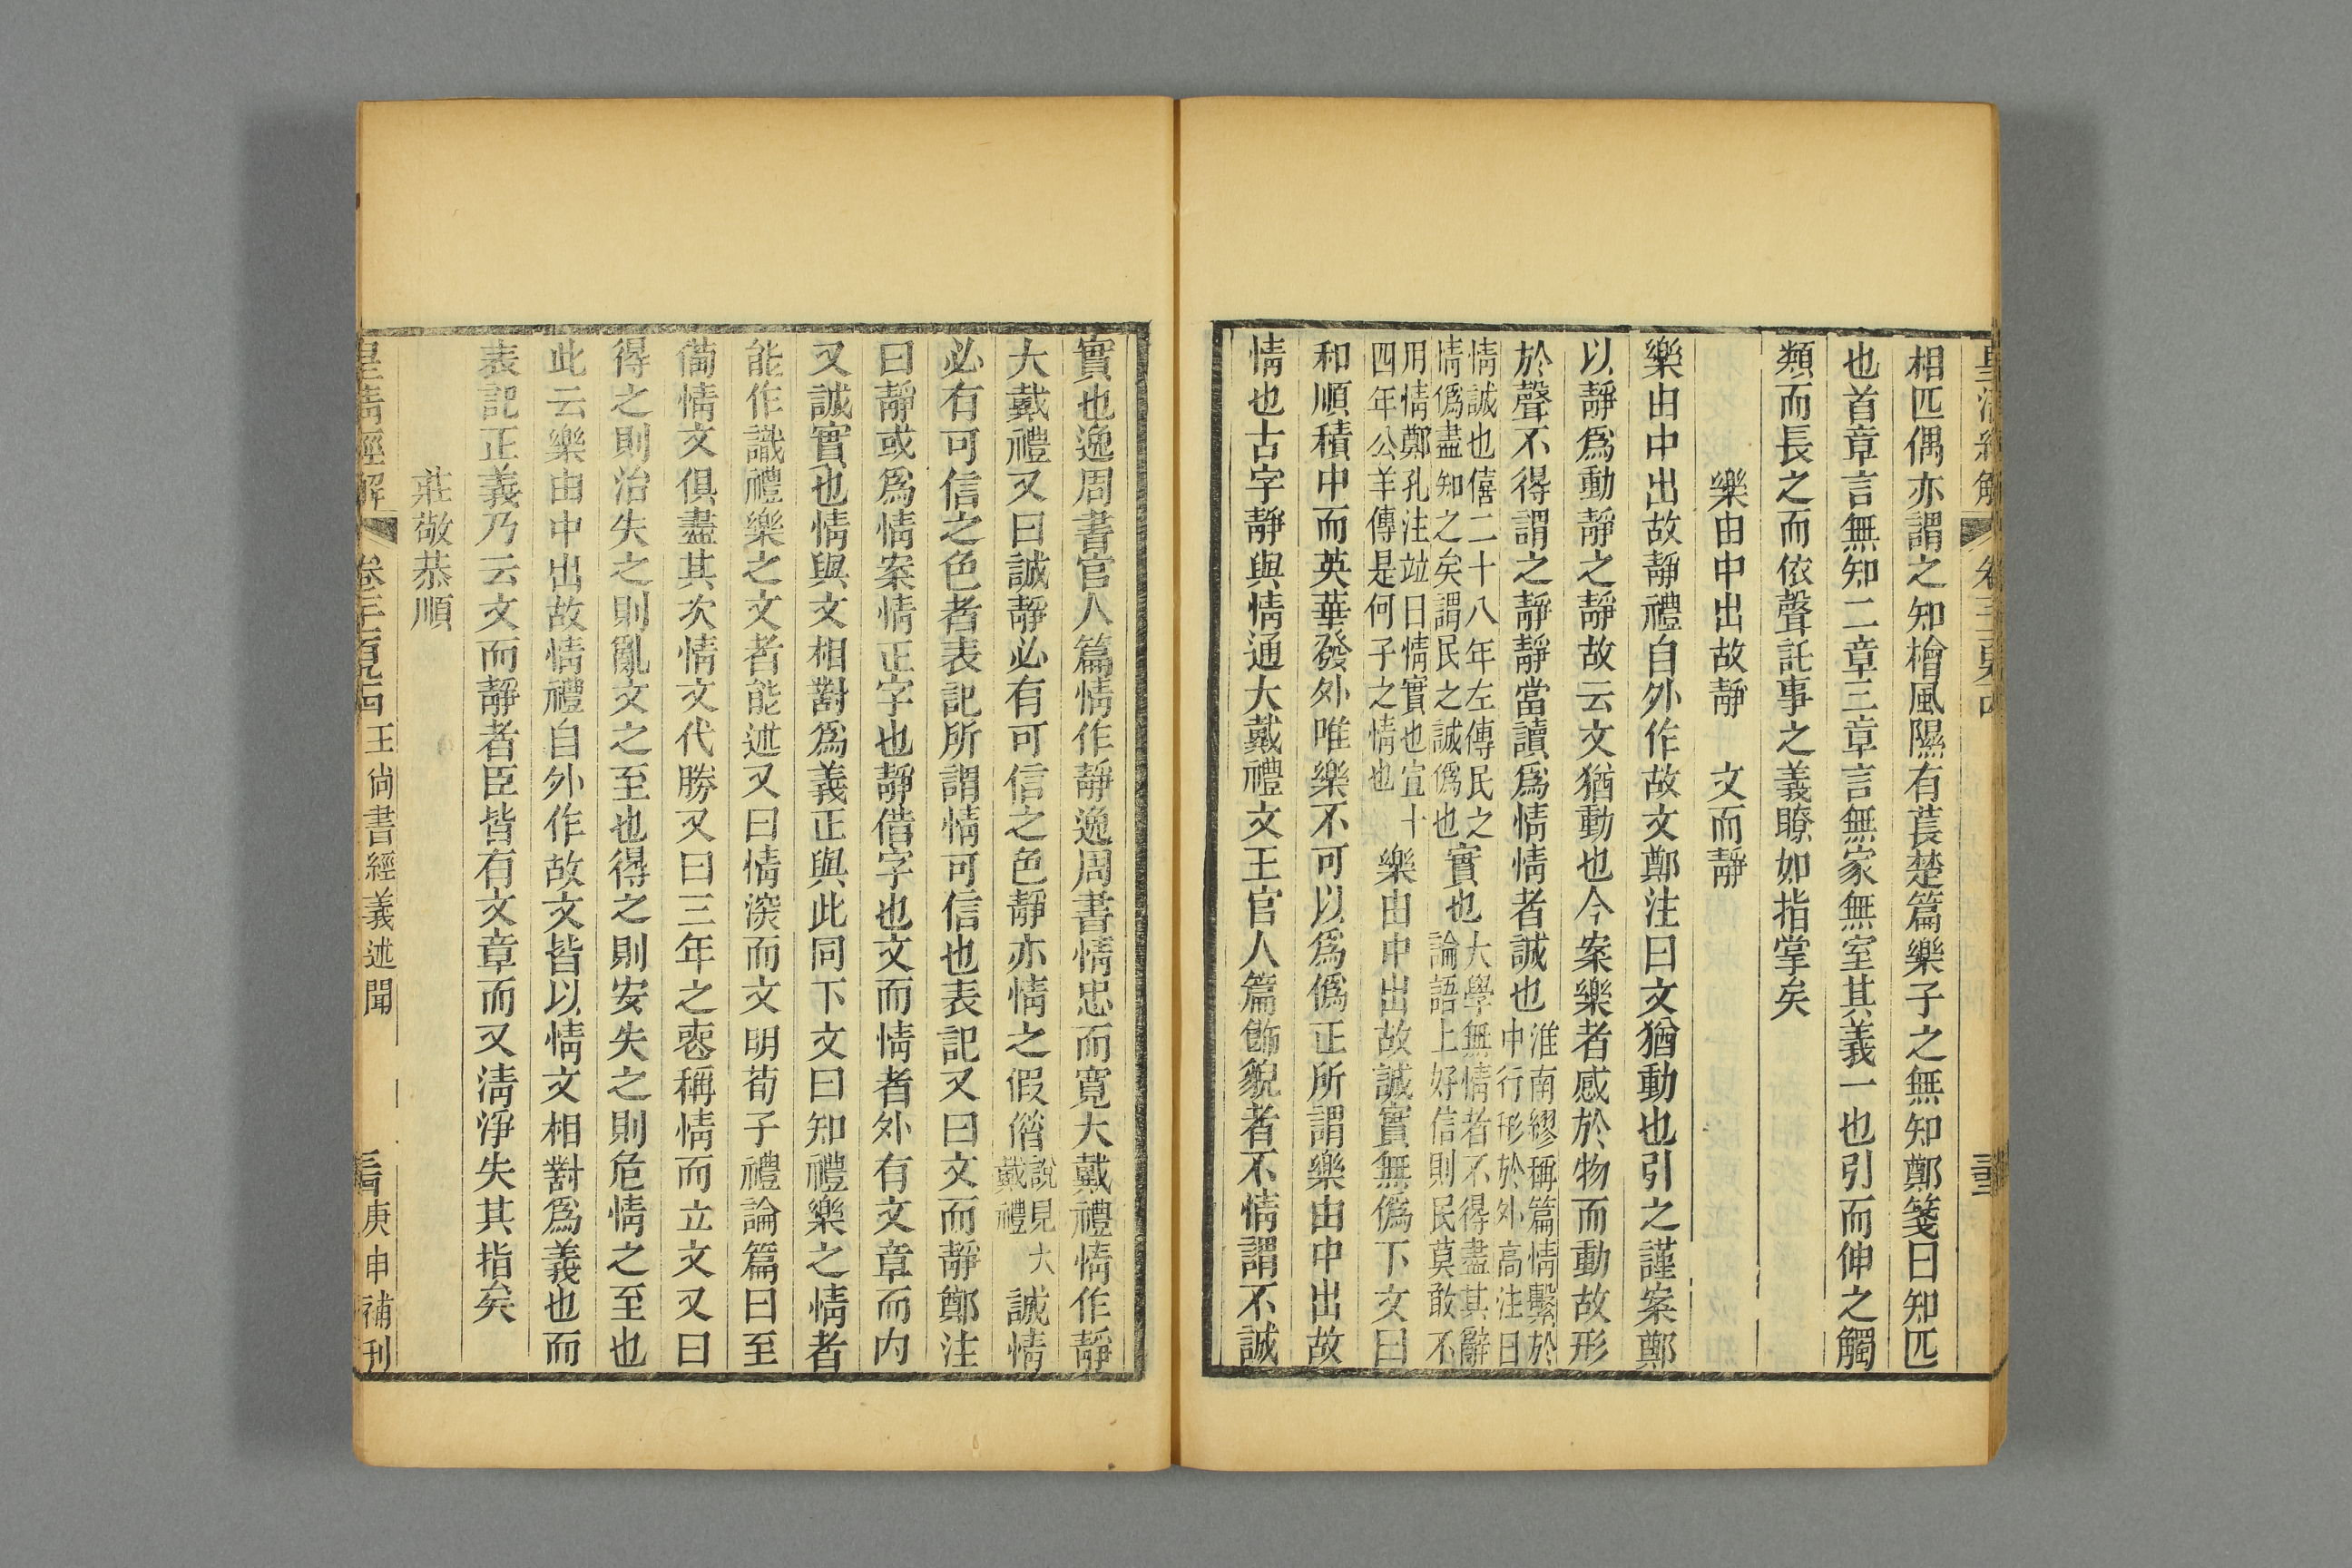 相匹偶亦謂之知檜風隰有萇楚篇樂子之無知鄭箋曰知匹
也首章言無知二章三章言無家無室其義一也引而伸之觸
類而長之而依聲託事之義瞭如指掌矣
樂由中出故靜　文而靜
樂由中出故靜禮自外作故文鄭注曰文猶動也引之謹案鄭
以靜爲動靜之靜故云文猶動也今案樂者感於物而動故形
於聲不得謂之靜靜當讀爲情情者誠也淮南繆稱篇情繫於中行形於外高注曰
情誠也僖二十八年左傳民之情僞盡知之矣謂民之誠僞也實也大學無情者不得盡其辭論語上好信則民莫敢不
用情鄭孔注竝曰情實也宣十四年公羊傳是何子之情也樂由中出故誠實無僞下文曰
和順積中而英華發外唯樂不可以爲僞正所謂樂由中出故
情也古字靜與情通大戴禮文王官人篇飾貌者不情謂不誠
實也逸周書官人篇情作靜逸周書情忠而寬大戴禮情作靜
大戴禮又曰誠靜必有可信之色靜亦情之假借說見大戴禮誠情
必有可信之色者表記所謂情可信也表記又曰文而靜鄭注
曰靜或爲情案情正字也靜借字也文而情者外有文章而内
又誠實也情與文相對爲義正與此同下文曰知禮樂之情者
能作識禮樂之文者能述又曰情深而文明荀子禮論篇曰至
備情文俱盡其次情文代勝又曰三年之喪稱情而立文又曰
得之則治失之則亂文之至也得之則安失之則危情之至也
此云樂由中出故情禮自外作故文皆以情文相對爲義也而
表記正義乃云文而靜者臣皆有文章而又清淨失其指矣
莊敬恭順
皇清經解　王尚書經義述聞　庚申補刊